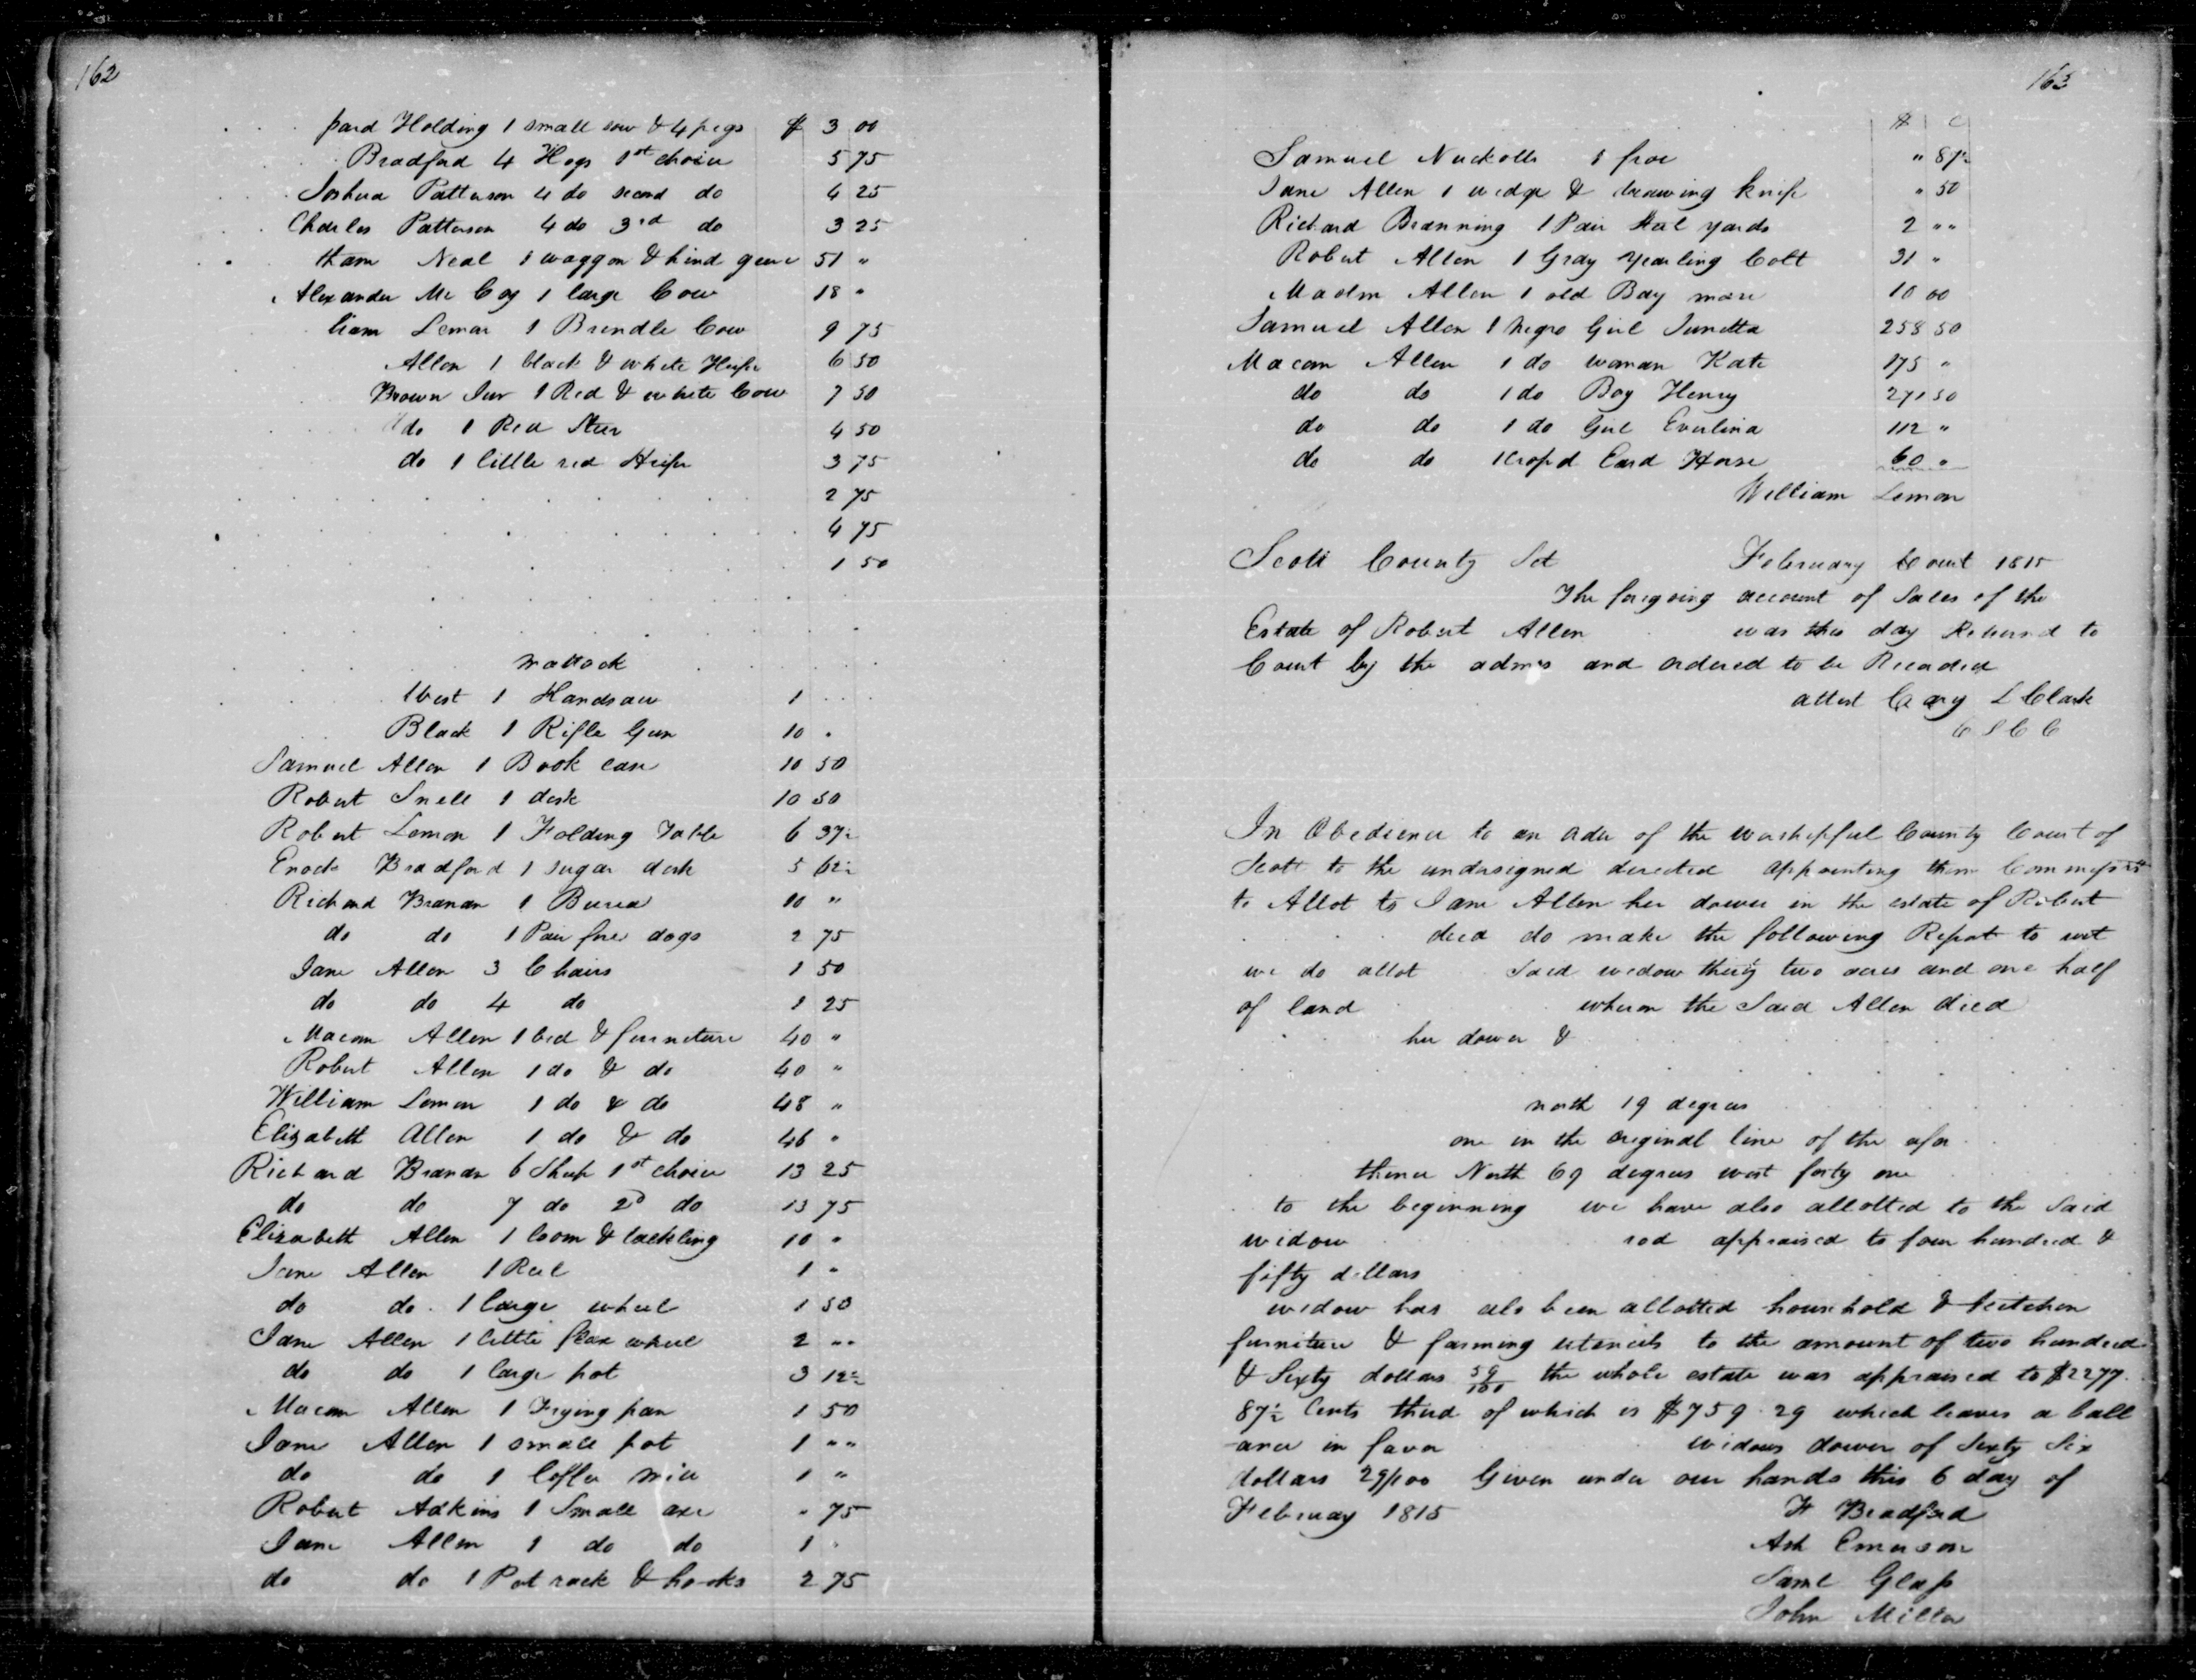 162
pard Holding 1 small sow & 4 pigs $ 3 00
Bradford 4 Hogs 1st choice 5 75
Joshua Patterson 4 do second do 4 25
Charles Patterson 4 do 3rd do 3 25
tham Neal 1 waggon & hind gear 51 "
Alexander Mc Coy 1 large Cow 18 "
liam Lemon 1 Brindle Cow 9 75
Allen 1 black & white Heifer 6 50
Brown Junr 1 Red & white Cow 7 50
do 1 Red Steer 4 50
do 1 little red Heifer 3 75
2 75
4 75
1 50
mattock
West 1 Handsaw 1
Black 1 Rifle Gun 10 "
Samuel Allen 1 Book case 10 50
Robert Snell 1 desk 10 50
Robert Lemon 1 Folding Table 6 37½
Enock Bradford 1 sugar desk 5 62½
Richard Branan 1 Burea 10 "
do do 1 Pair fire dogs 2 75
Jane Allen 3 Chairs 1 50
do do 4 do 1 25
Macom Allen 1 bed & furneture 40 "
Robert Allen 1 do & do 40 "
William Lemon 1 do & do 48 "
Elizabeth Allen 1 do & do 46 "
Richard Branan 6 Sheep 1st choice 13 25
do do 7 do 2d do 13 75
Elizabeth Allen 1 loom & tackling 10 "
Jane Allen 1 Reel 1 "
do do 1 large wheel 1 50
Jane Allen 1 little flax wheel 2 ""
do do 1 large pot 3 12½
Macom Allen 1 Frying pan 1 50
Jane Allen 1 small pot 1 ""
do do 1 Coffee mill 1 "
Robert Adkins 1 Small axe " 75
Jane Allen 1 do do 1 "
do do 1 Pot rack & hooks 2 75
163
$ C
Samuel Nuckolls 1 froe " 87½
Jane Allen 1 wedge & drawing knife " 50
Richard Branning 1 Pair Steel yards 2 ""
Robert Allen 1 Gray Yearling Colt 31 "
Allen 1 old Bay mare 10 00
Samuel Allen 1 negro Girl Junetta 258 50
Macom Allen 1 do woman Kate 175 "
do do 1 do Boy Henry 271 50
do do 1 do Girl Evelina 112 "
do do 1 Crop'd Eard Horse 60 "
William Lemon
Scott County Sct February Court 1815
The foregoing account of Sales of the
Estate of Robert Allen was this day Returned to
Court by the admrs and ordered to be Recorded
attest Cary L Clark
C S C C
In Obedience to an order of the worshipful County Court of
Scott to the undersigned directed appointing them
to Allot to Jane Allen her dower in the estate of Robert
decd do make the following Report to wit
we do allot Said widow thirty two acres and one half
of land whereon the Said Allen died
her dower &
north 19 degrees
one in the original line of the afor
thence North 69 degrees west forty one
to the beginning we have also allotted to the Said
widow rod appraised to four hundred &
fifty dollars
widow has als been allotted household & kitchen
furniture & farming utencils to the amount of two hundred
& Sixty dollars 59/100 the whole estate was appraised to $2277
87½ Cents third of which is $759.29 which leaves a ball
ance in favor widows dower of Sixty Six
dollars 29/100 Given under our hands this 6 day of
February 1815 F Bradford
Ash Emerson
Saml Glass
John Miller